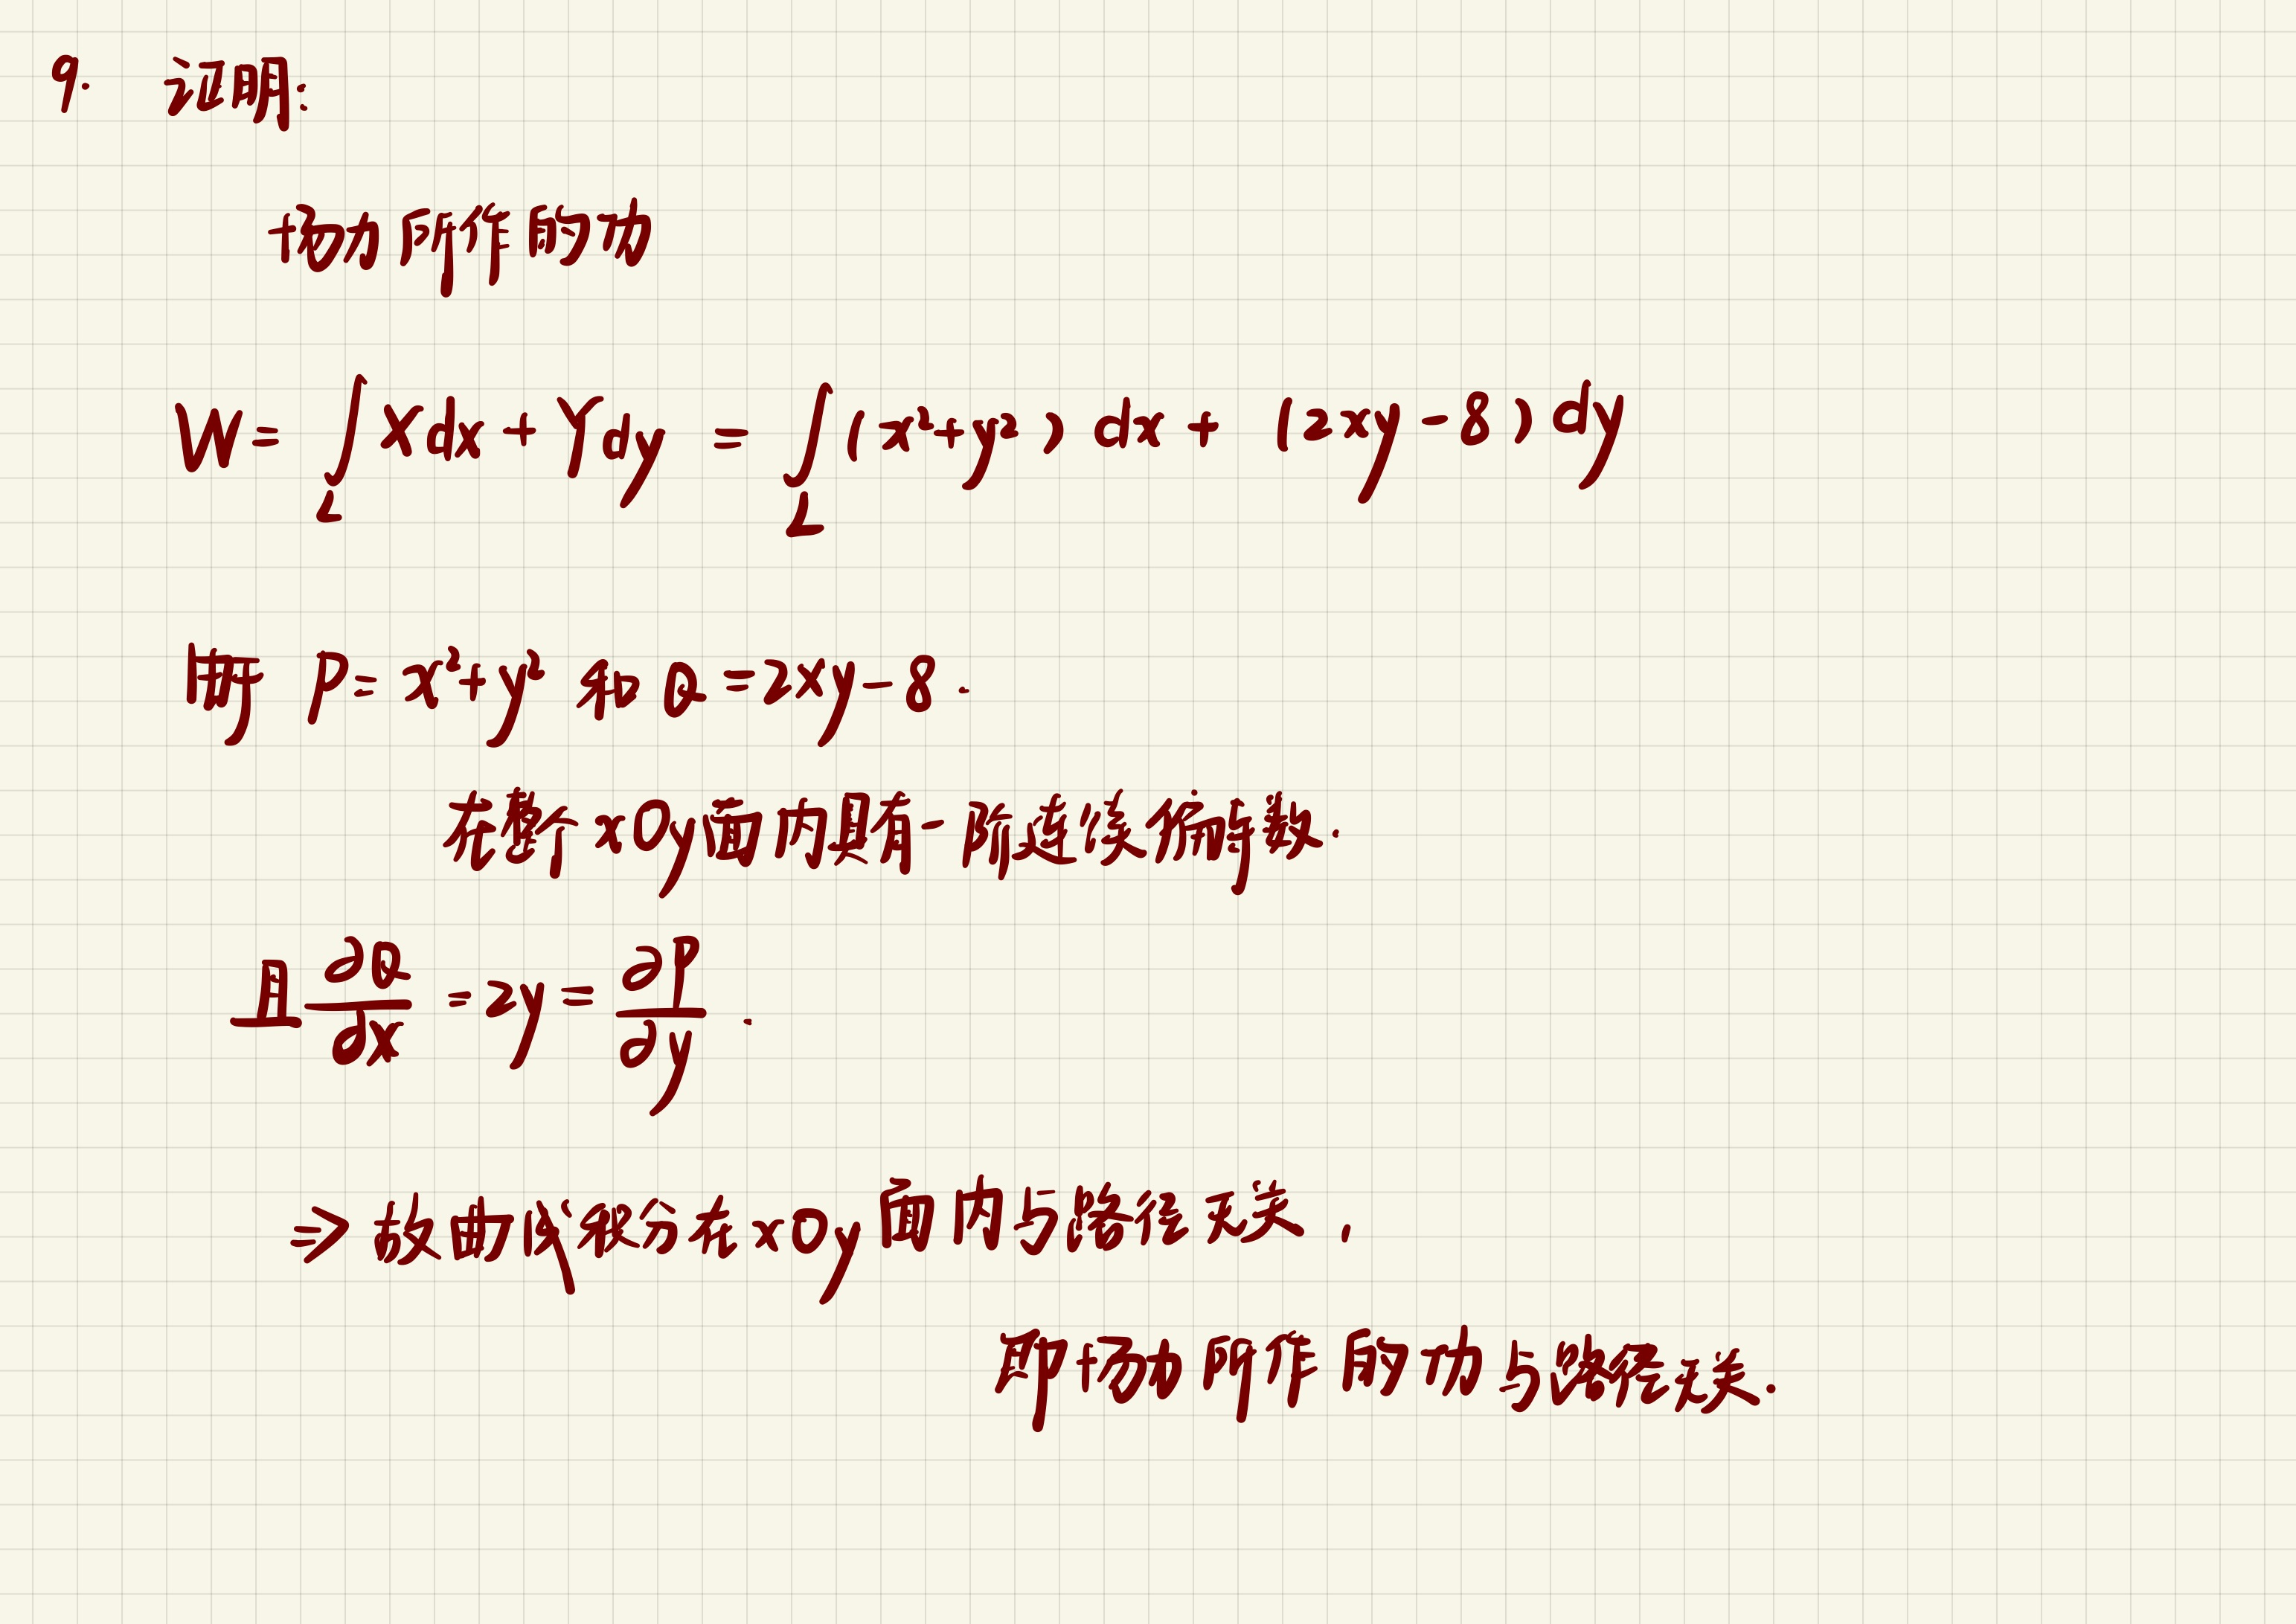 9. 证明:
场力所作的功
W = ∫_L X dx + Y dy = ∫_L (x²+y²) dx + (2xy-8) dy
由于 P = x²+y² 和 Q = 2xy-8.
在整个xOy面内具有一阶连续偏导数.
且 ∂Q/∂x = 2y = ∂P/∂y .
⇒ 故曲线积分在xOy面内与路径无关,
即场力所作的功与路径无关.